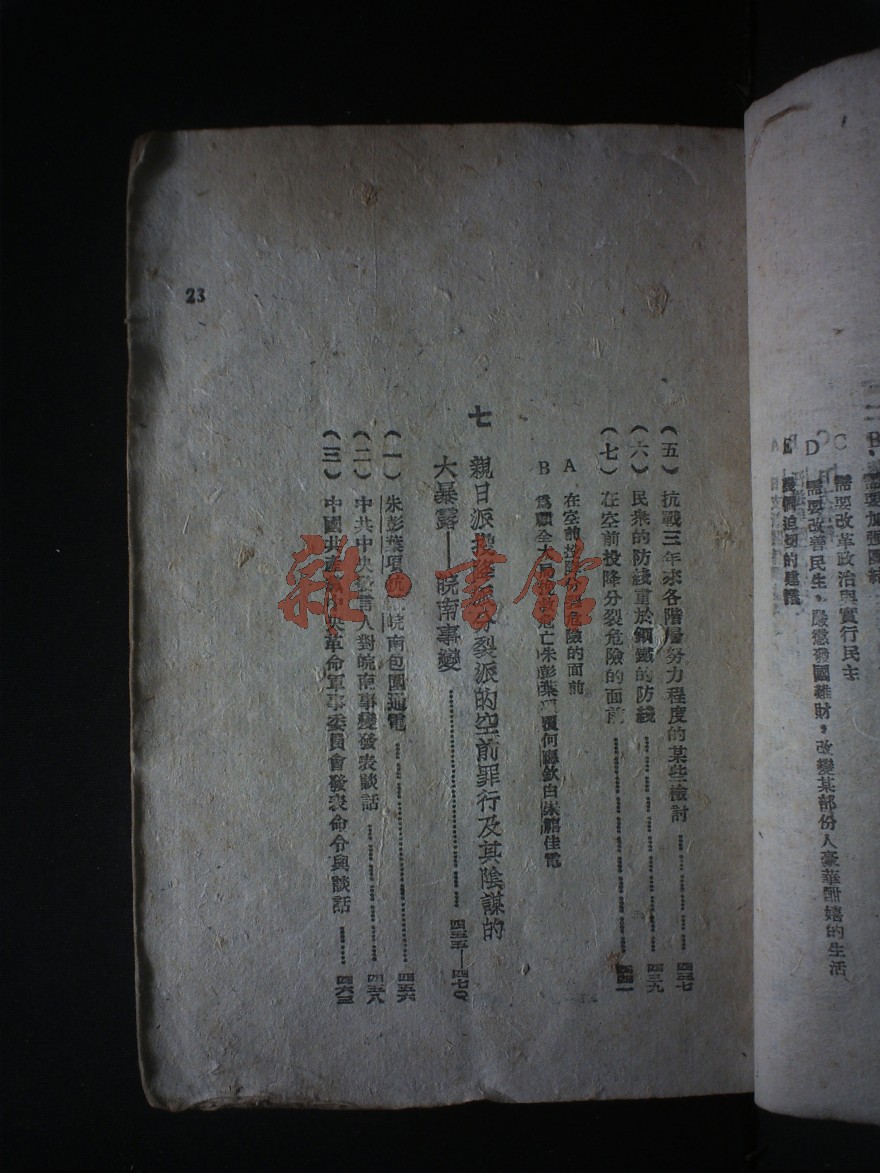 C 需要改革政治與實行民主
D 需要改善民生,嚴懲發國難財,改變某部份人豪華酣嬉的生活
(五)抗戰三年來各階層努力程度的某些檢討……四三七
(六)民衆的防綫重於鋼鐵的防綫……四三九
(七)在空前投降分裂危險的面前……四四一
A 在空前投降分裂危險的面前
B 爲顧全大局挽救危亡朱彭葉項覆何應欽白崇禧佳電
七 親日派投降派分裂派的空前罪行及其陰謀的
大暴露——皖南事變……四五五—四七〇
(一)朱彭葉項抗議皖南包圍通電……四五六
(二)中共中央發言人對皖南事變發表談話……四五八
(三)中國共產黨中央革命軍事委員會發表命令與談話……四六三
23
雜·書館